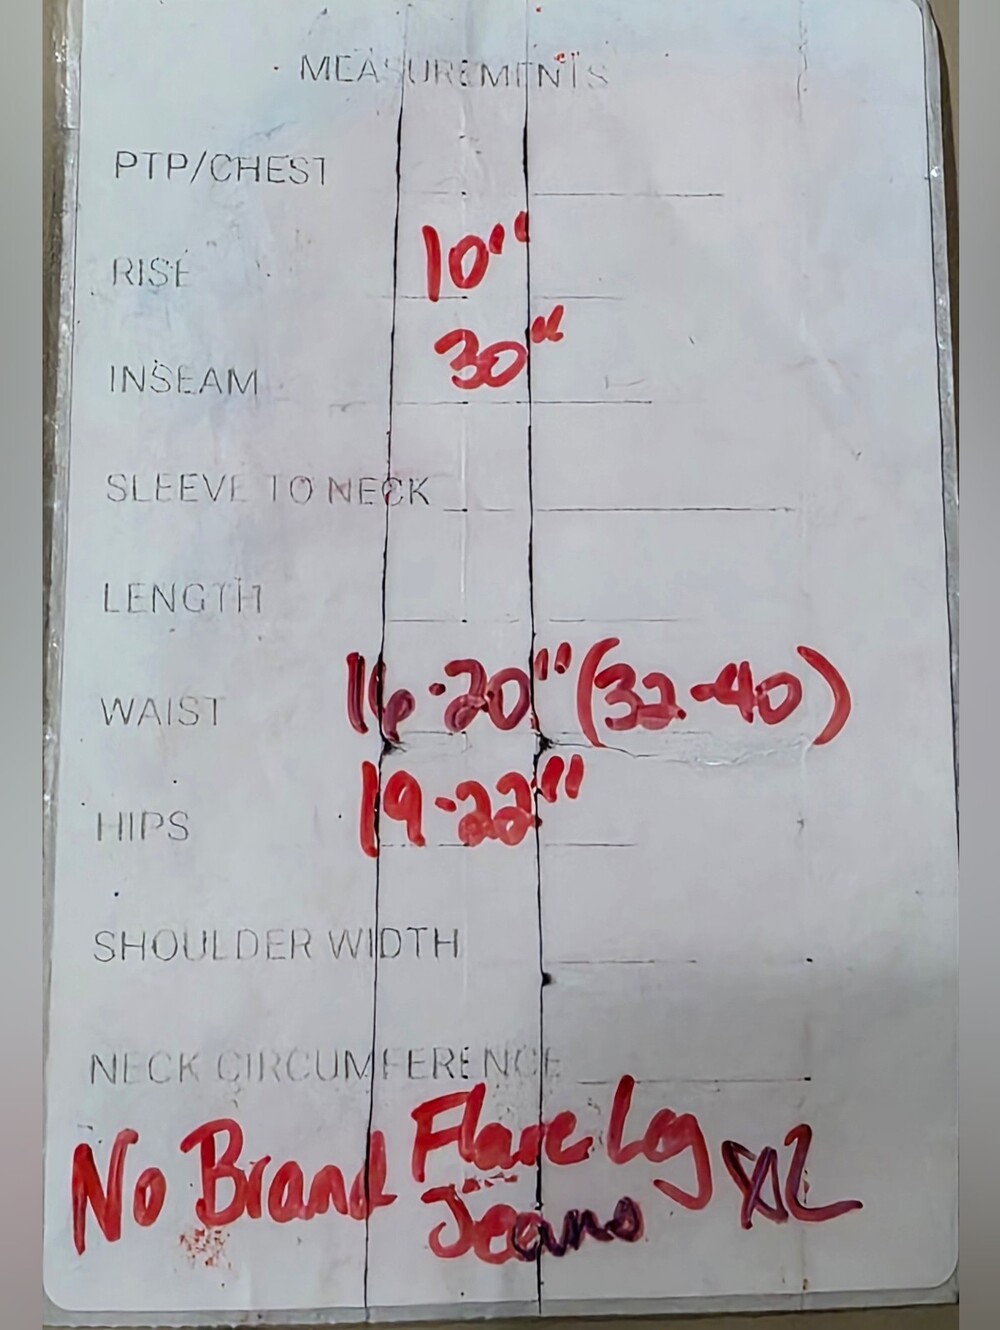 MEASUREMENTS
PTP/CHEST
RISE 10"
INSEAM 30"
SLEEVE TO NECK
LENGTH
WAIST 16-20" (32-40)
HIPS 19-22"
SHOULDER WIDTH
NECK CIRCUMFERENCE
No Brand Flare Leg XL
Jeans